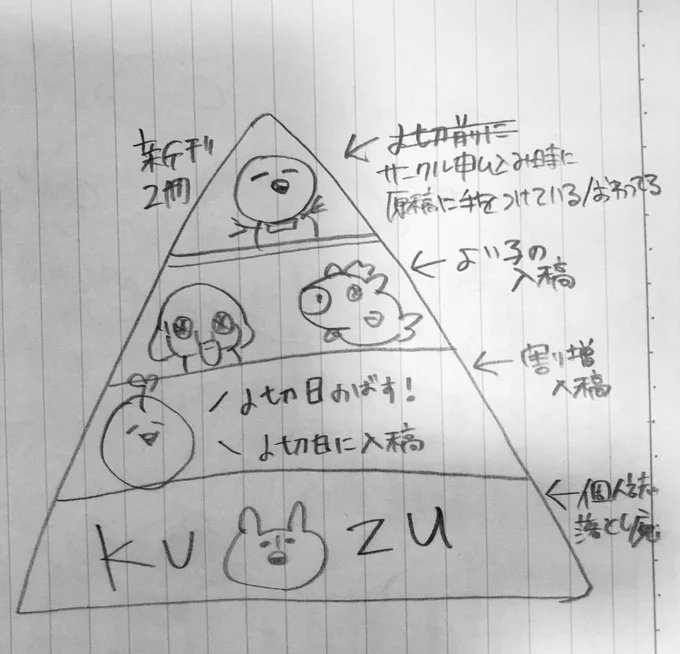 新刊
2冊
〆切前に
サークル申し込み時に
原稿に手をつけている/おわってる
よい子の
入稿
割り増
入稿
〆切日のばす!
〆切日に入稿
個人誌
落とし
KU ZU